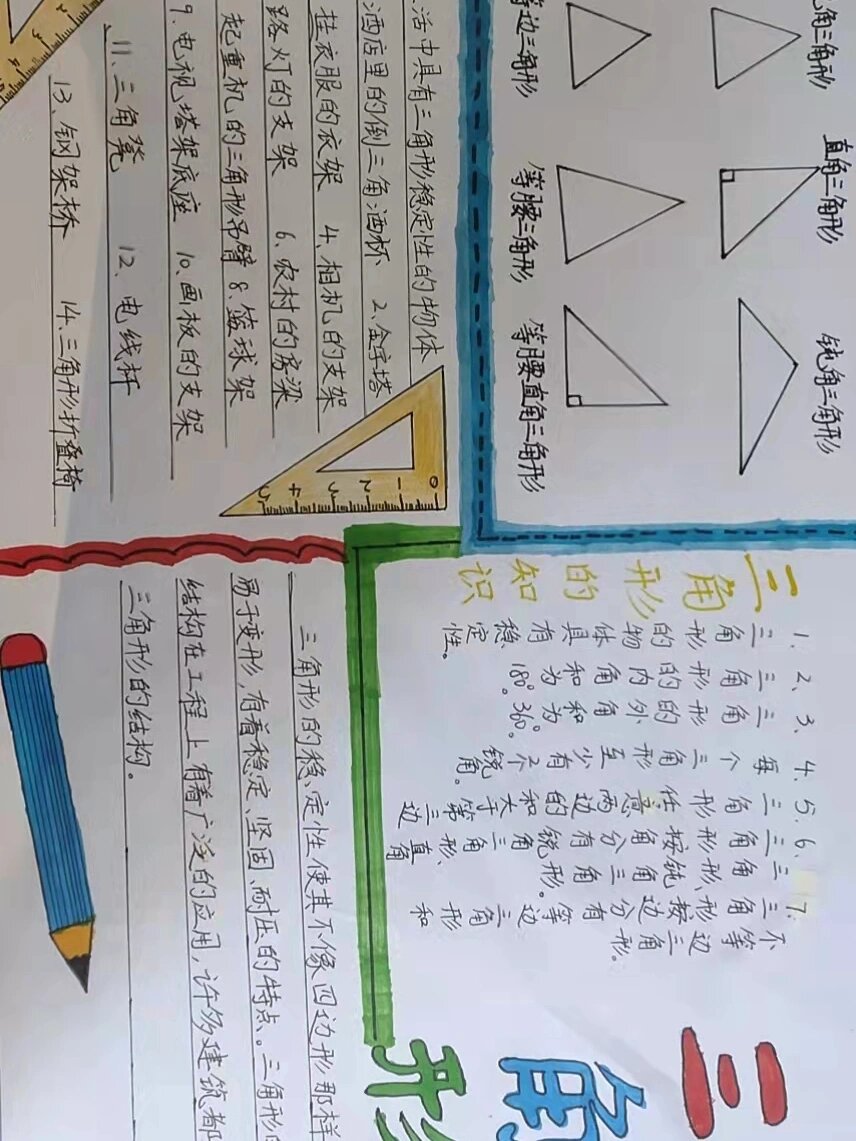 角三角形
直角三角形
钝角三角形
边三角形
等腰三角形
等腰直角三角形
活中具有三角形稳定性的物体
酒店里的倒三角酒杯 2.金字塔
挂衣服的衣架 4.相机的支架
路灯的支架 6.农村的房梁
起重机的三角形吊臂 8.篮球架
9.电视塔架底座 10.画板的支架
11.三角凳 12.电线杆
13、钢架桥 14.三角形折叠椅
0 1 2 3 4 5
三角形
三角形的知识
1.三角形的物体具有稳定性。
2、三角形的内角和为180°。
3、三角形的外角和为360°。
4.每个三角形至少有2个锐角。
5.三角形任意两边的和大于第三边
6.三角形按角分有锐角三角形、直角
三角形、钝角三角形。
7.三角形按边分有等边三角形和
不等边三角形。
三角形的稳定性使其不像四边形那样
易于变形,有着稳定、坚固、耐压的特点。三角形
结构在工程上有着广泛的应用,许多建筑都
三角形的结构。